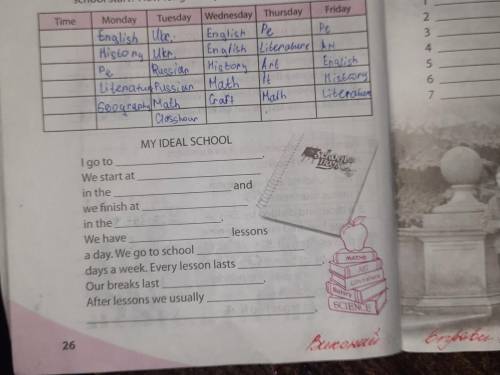 Time Monday Tuesday Wednesday Thursday Friday
English Ukr. English Pe Pe
History Ukr. English Literature
Pe Russian History Art English
Literature Russian Math It History
Geography Math Craft Math Literature
Classhour
MY IDEAL SCHOOL
I go to
We start at
in the and
we finish at
in the
We have lessons
a day. We go to school
days a week. Every lesson lasts
Our breaks last
After lessons we usually
MATHS
ART
Literature
History
SCIENCE
26
Виконай
1
2
3
4
5
6
7